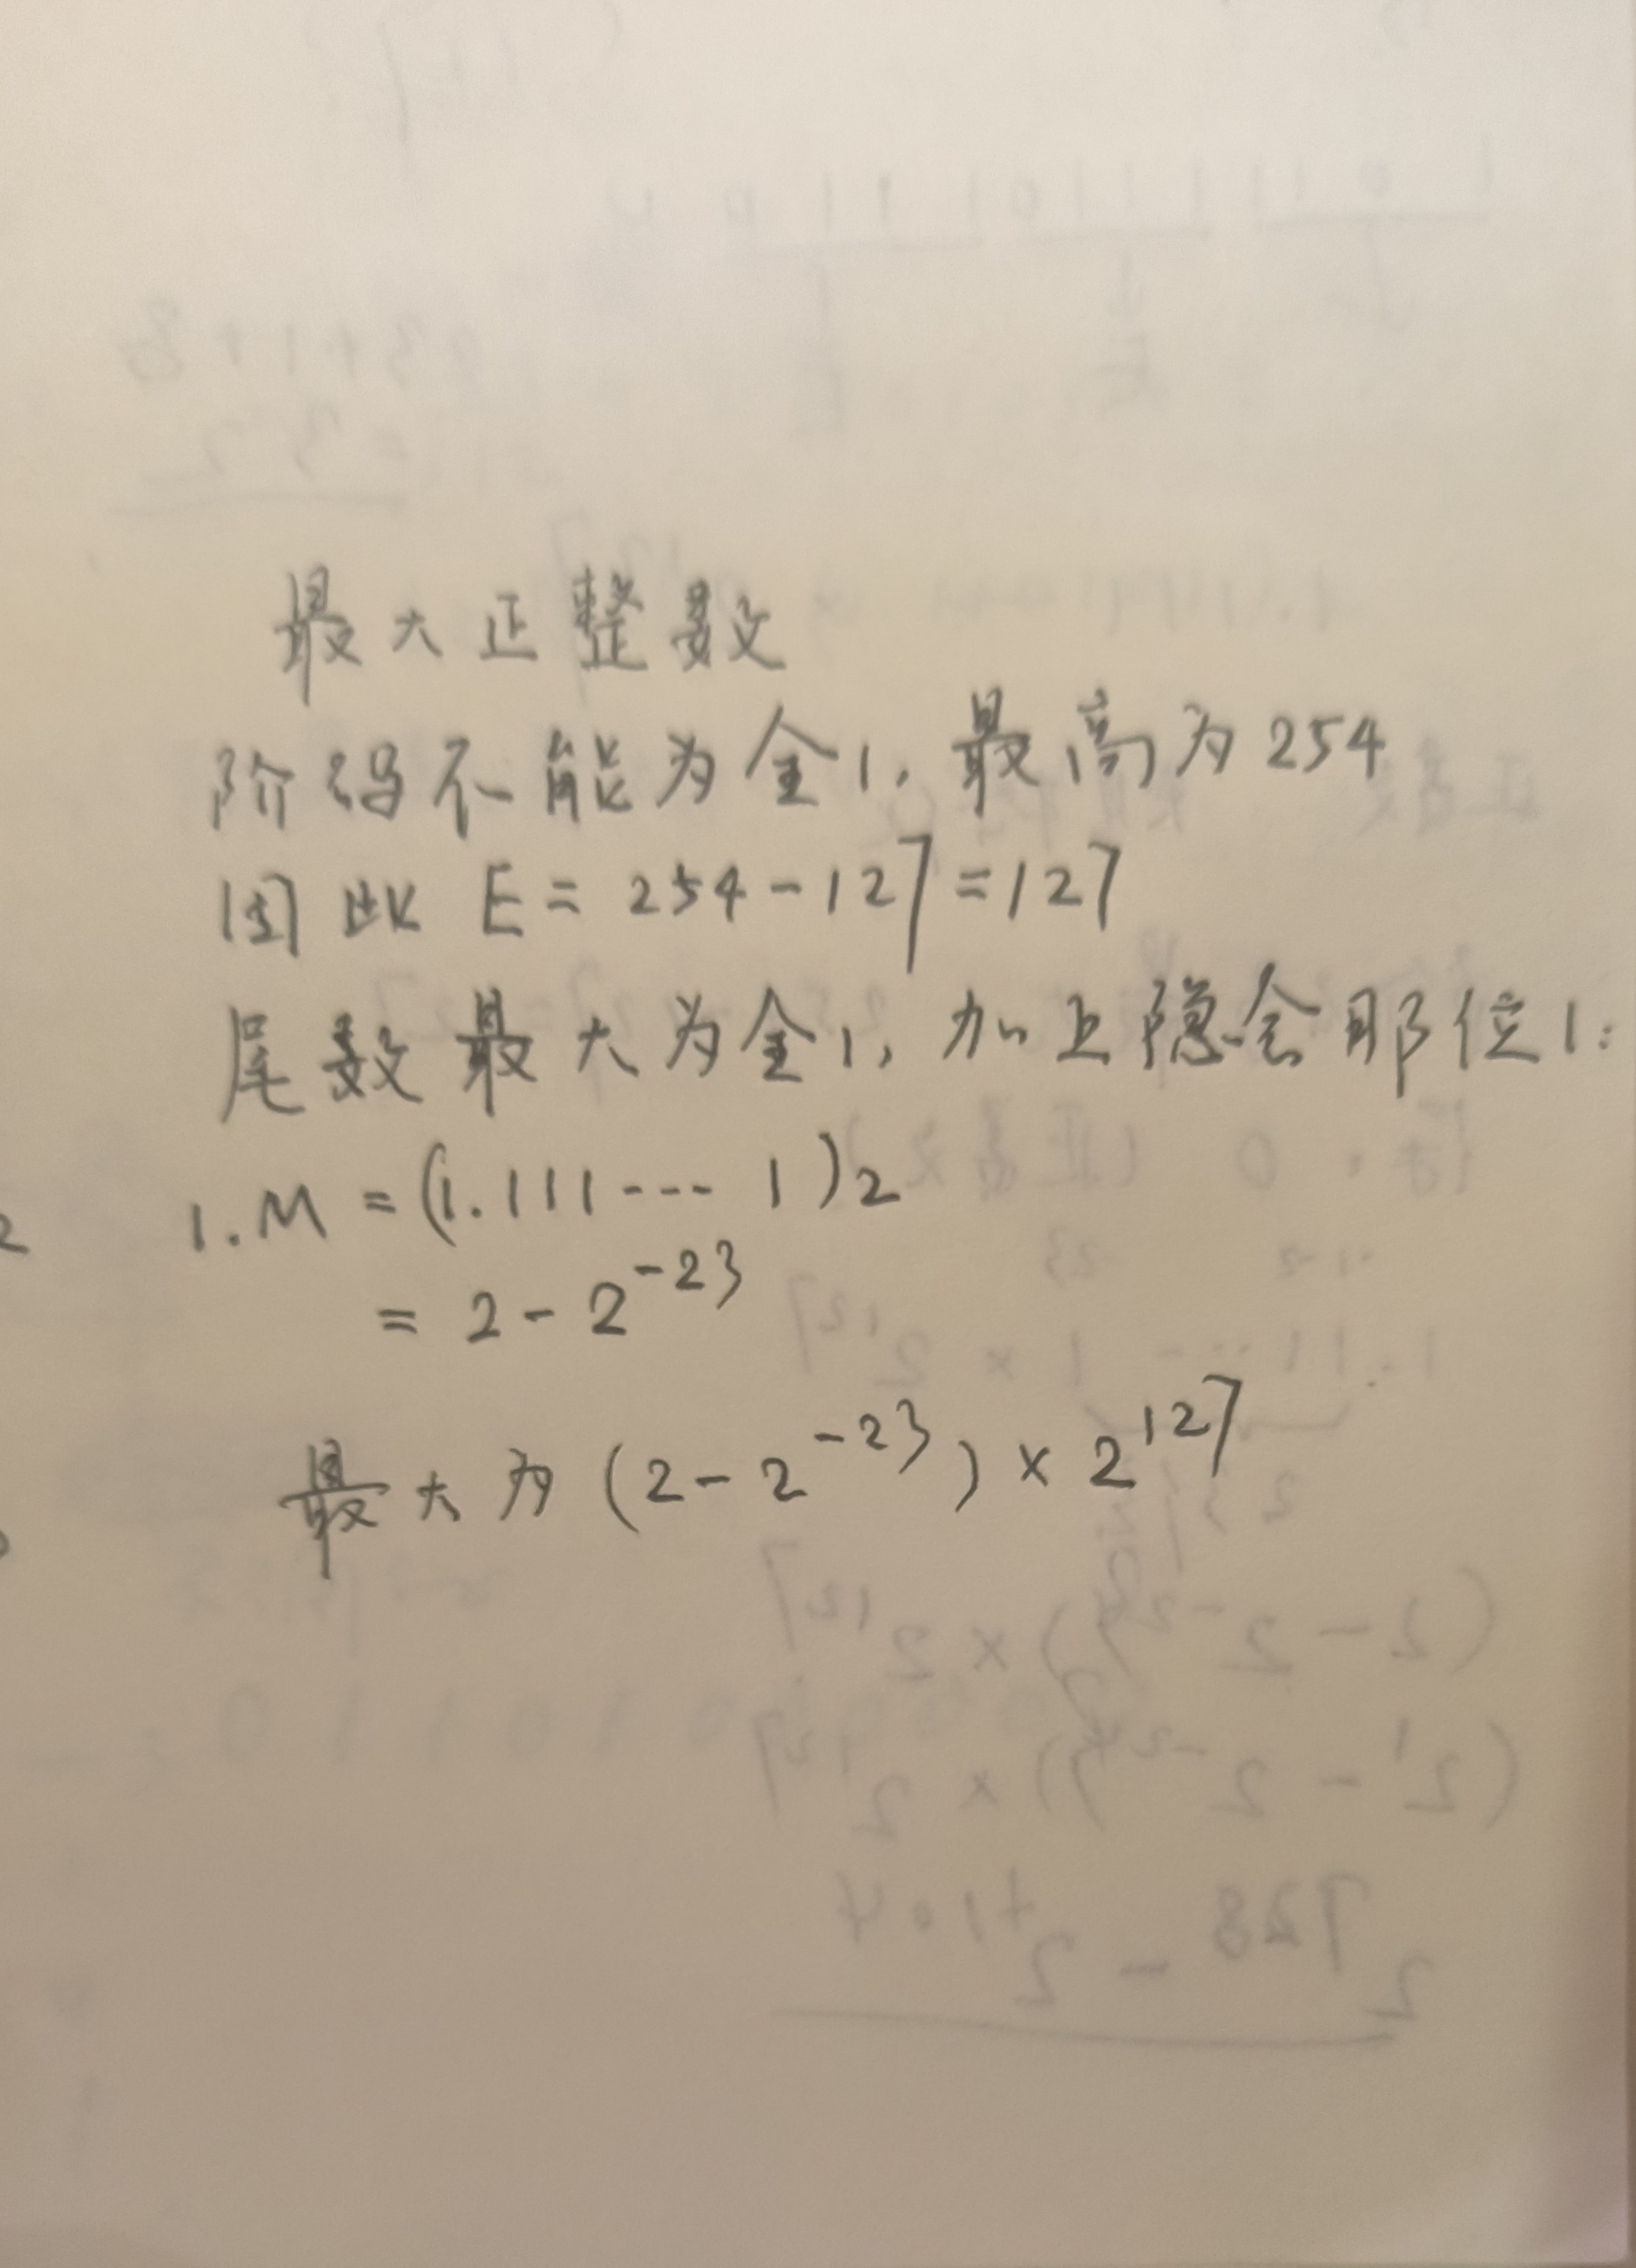 最大正整数
阶码不能为全1，最高为254
因此 E = 254 - 127 = 127
尾数最大为全1，加上隐含那位1:
1.M = (1.111--- 1)2
= 2 - 2^-23
最大为 (2 - 2^-23) × 2^127